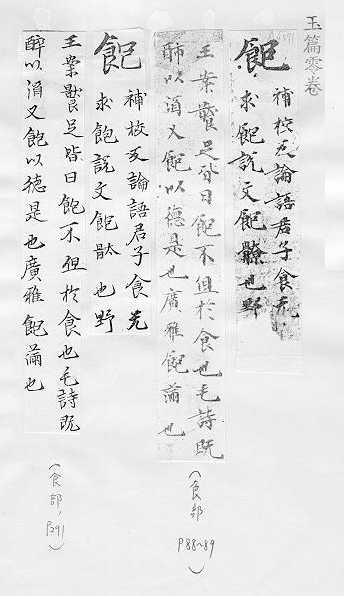 玉篇零卷
飽
補挍反論語君子食无
求飽說文飽也野
王案足皆曰飽不但於食也毛詩既
醉以酒又飽以德是也廣雅飽滿也
(食部 P88~89)
飽
補挍反論語君子食无
求飽說文飽也野
王案足皆曰飽不但於食也毛詩既
醉以酒又飽以德是也廣雅飽滿也
(食部, P291)